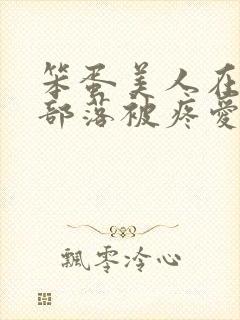 笨蛋美人在
部落被疼爱
飄零冷心